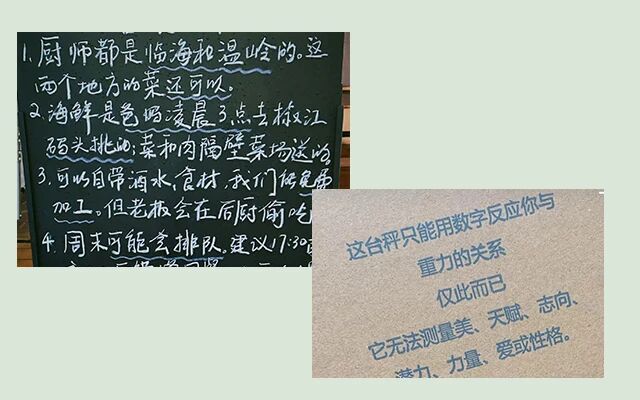 1.厨师都是临海和温岭的。这
两个地方的菜还可以。
2.海鲜是爸妈凌晨3点去椒江
码头挑的；菜和肉隔壁菜场送的。
3.可以自带酒水、食材，我们提供免费
加工。但老板会在后厨偷吃
4.周末可能会排队。建议17:30
这台秤只能用数字反应你与
重力的关系
仅此而已
它无法测量美、天赋、志向、
潜力、力量、爱或性格。